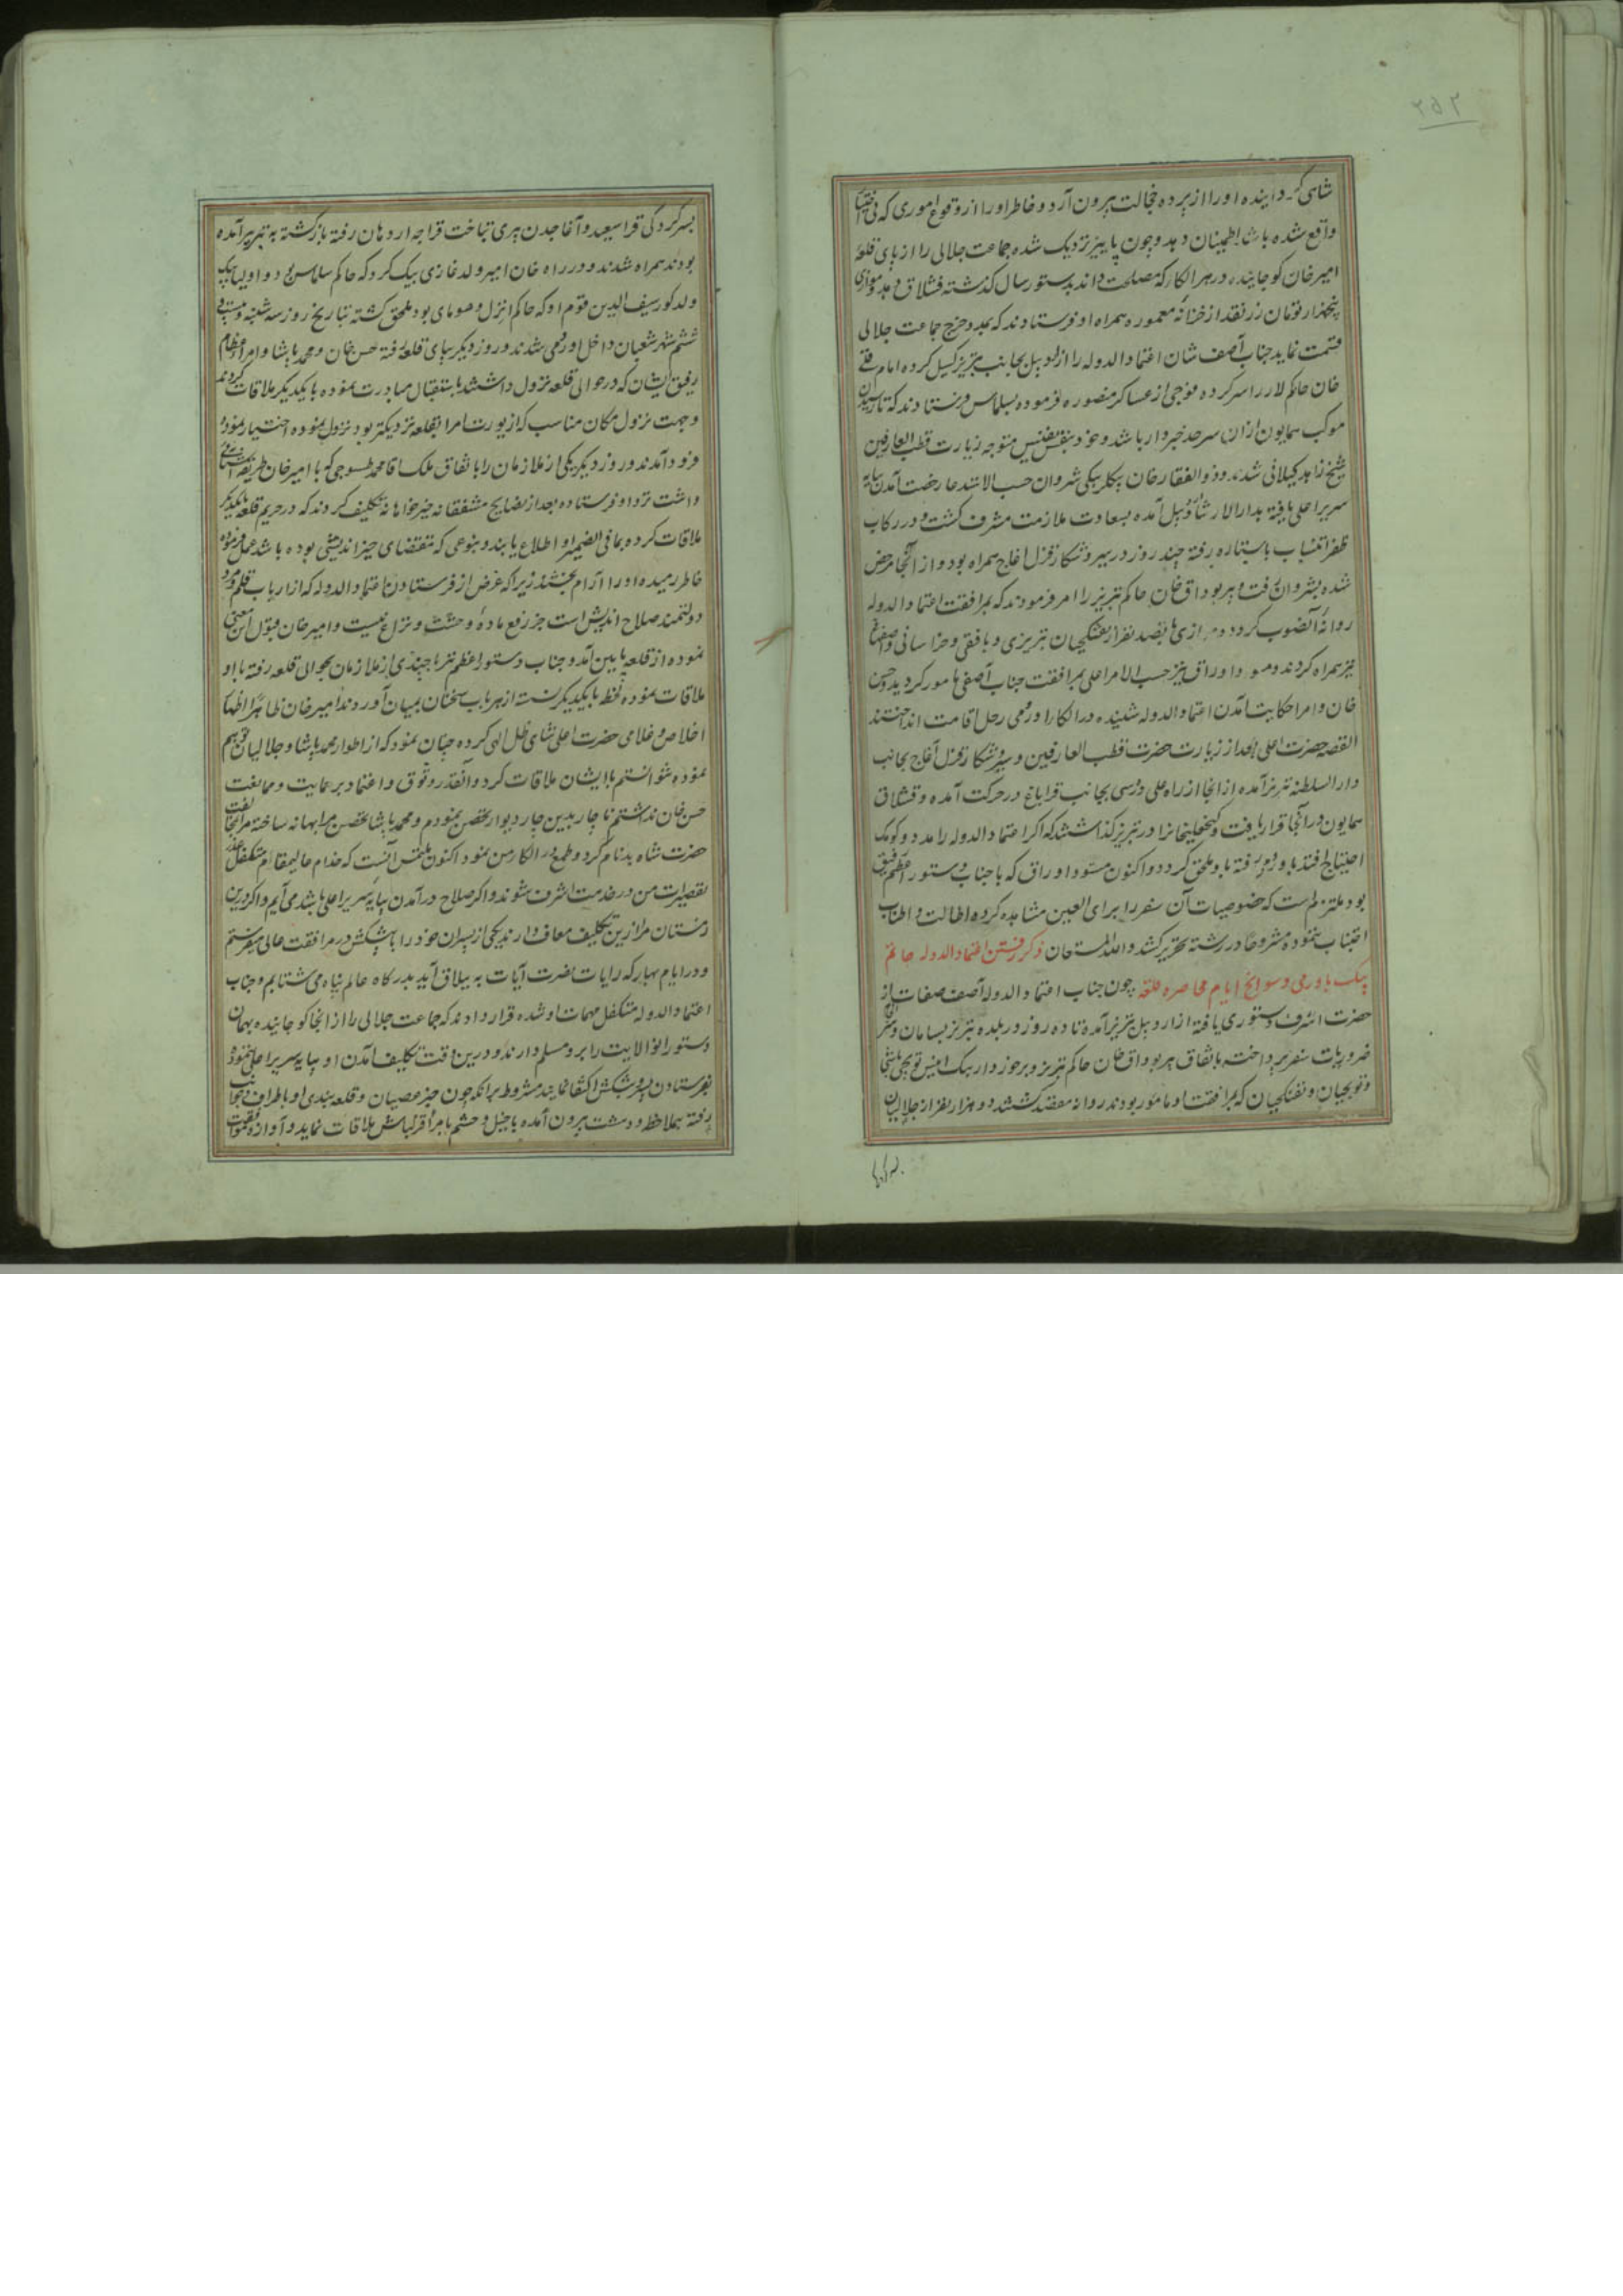 ۲۵۲
شاهی گردانیده او را از پرده خجالت بیرون آرد و خاطر او را از وقوع اموری که بی اختیار
واقع شده باشد اطمینان دهد و چون پاییز نزدیک شده جماعت جلالی را از پای قلعه
امیرخان کوچانیده در هر الکا که مصلحت داند بدستور سال گذشته قشلاق دهد و موازی
پنجهزار تومان زر نقد از خزانه معموره همراه او فرستادند که بمدد خرج جماعت جلالی
قسمت نماید جناب آصف شان اعتماد الدوله را از اردبیل بجانب تبریز گسیل کرده امام قلی
خان حاکم لار را سر کرده فوجی از عساکر منصوره فرموده بسلماس فرستادند که تا رسیدن
موکب همایون از ان سرحد خبردار باشد و خود بنفس نفیس متوجه زیارت قطب العارفین
شیخ زاهد گیلانی شدند و ذوالفقار خان بیگلربیگی شروان حسب الاستدعا رخصت آمدن بپایه
سریر اعلی یافته بدار الارشاد اردبیل آمده بسعادت ملازمت مشرف گشت و در رکاب
ظفر انتساب باستاره رفته چند روز در سیر و شکار قزل اغاج همراه بود و از آنجا مرخص
شده بشروان رفت و پیر بوداق خان حاکم تبریز را امر فرمودند که بمرافقت اعتماد الدوله
روانه آنصوب گردد و موازی پانصد نفر از تفنگچیان تبریزی و بافقی و خراسانی و اصفهانی
نیز همراه کردند و مسود اوراق نیز حسب الامر اعلی بمرافقت جناب آصفی مامور گردید حسن
خان و امرا حکایت آمدن اعتماد الدوله شنیده در الکا ارومی رحل اقامت انداختند
القصه حضرت اعلی بعد از زیارت حضرت قطب العارفین و سیر و شکار قزل آغاج بجانب
دار السلطنه تبریز آمده از انجا از راه علی درسی بجانب قراباغ در حرکت آمده و قشلاق
همایون در آنجا قرار یافت و گنجعلیخانرا در تبریز گذاشتند که اگر اعتماد الدوله را مدد و کومک
احتیاج افتد باورمی رفته باو ملحق گردد و اکنون مسود اوراق که با جناب دستور اعظم رفیق
بود ملتزم است که خصوصیات آن سفر را برای العین مشاهده کرده اطالت و اطناب
اجتناب ننموده مشروحا در رشته تحریر کشد والله المستعان ذکر رفتن اعتماد الدوله حاتم
بیک باورمی و سوانح ایام محاصره قلعه چون جناب اعتماد الدوله آصف صفات از
حضرت اشرف دستوری یافته از اردبیل بتبریز آمده تا ده روز در بلده تبریز بسامان و سر انجام
ضروریات سفر پرداخته باتفاق پیر بوداق خان حاکم تبریز و برخوردار بیک انیس توپچی باشی
و توپچیان و تفنگچیان که بمرافقت او مامور بودند روانه مقصد گشتند و دو هزار نفر از جلالیان
بسر کردگی قراسعید و آغاجدن پیری بتاخت قراجه اردهان رفته بازگشته به تبریز آمده
بودند همراه شدند و در راه خان امیر ولد غازی بیک کرد که حاکم سلماس بود و اولیا بیک
ولد کور سیف الدین قوم او که حاکم انزل و صومای بود ملحق گشته بتاریخ روز سه شنبه بیست و
ششم شهر شعبان داخل اورمی شدند و روز دیگر بپای قلعه رفته حسن خان و محمد پاشا و امراء عظام
رفیق ایشان که در حوالی قلعه نزول داشتند باستقبال مبادرت نموده با یکدیگر ملاقات کردند
و جهت نزول مکان مناسب که از یورت امرا بقلعه نزدیکتر بود نزول نموده اختیار نمودند
فرود آمدند و روز دیگر یکی از ملازمان را باتفاق ملک آقا محمد طسوجی که با امیرخان طریقه آشنایی
داشت نزد او فرستاده بعد از نصایح مشفقانه خیرخواهانه تکلیف کردند که در حریم قلعه با یکدیگر
ملاقات کرده بما فی الضمیر او اطلاع یابند و بنوعی که مقتضای خیراندیشی بوده باشد عمل فرموده
خاطر رمیده او را آرام بخشند زیرا که غرض از فرستادن اعتماد الدوله که از ارباب قلم و مرد
دولتمند صلاح اندیش است جز رفع ماده وحشت و نزاع نیست و امیر خان قبول این معنی
نموده از قلعه پایین آمد و جناب دستور اعظم نیز با چندی از ملازمان بحوالی قلعه رفته با او
ملاقات نموده لحظه با یکدیگر نشسته از هر باب سخنان بمیان آوردند امیرخان ظاهرا اظهار
اخلاص و غلامی حضرت اعلی شاهی ظل الهی کرده چنان نمود که از اطوار محمد پاشا و جلالیان توهم
نموده نتوانستم با ایشان ملاقات کرد و آنقدر وثوق و اعتماد بر حمایت و ممانعت
حسن خان نداشتم ناچار بدین چار دیوار تحصن نمودم و محمد پاشا تحصن مرا بهانه ساخته مرا بمخالفت
حضرت شاه بدنام کرد و طمع در الکا من نمود اکنون ملتمس آنست که خدام عالیمقام متکفل عذر
تقصیرات من در خدمت اشرف شوند و اگر صلاح در آمدن بپایه سریر اعلی باشد می آیم و اگر درین
زمستان مرا ازین تکلیف معاف دارند یکی از پسران خود را با پیشکش در مرافقت عالی میفرستم
و در ایام بهار که رایات نصرت آیات به ییلاق آید بدرگاه عالم پناه می شتابم و جناب
اعتماد الدوله متکفل مهمات او شده قرار دادند که جماعت جلالی را از انجا کوچانیده بهمان
دستور انوالایت را برو مسلم دارند و درین وقت تکلیف آمدن او بپایه سریر اعلی ننموده
بفرستادن پسر و پیشکش اکتفا نمایند مشروط بر آنکه چون خبر عصیان و قلعه بندی او باطراف و جوانب
رفته بملاحظه و دهشت بیرون آمده با خیل و حشم بامراء قزلباش ملاقات نماید و آوازه